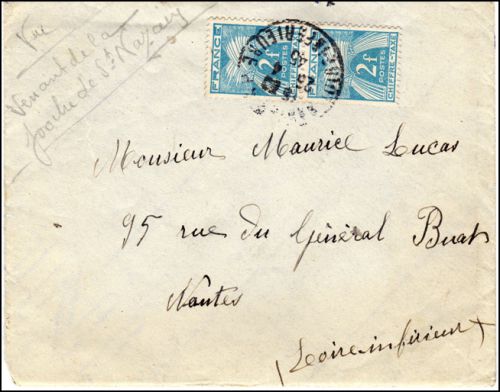 Vue
Venant de la
poche de St Nazaire
FRANCE
2f
POSTES
CHIFFRE-TAXE
FRANCE
2f
POSTES
CHIFFRE-TAXE
Monsieur Maurice Lucas
95 rue du Général Buat
Nantes
(Loire inférieure)